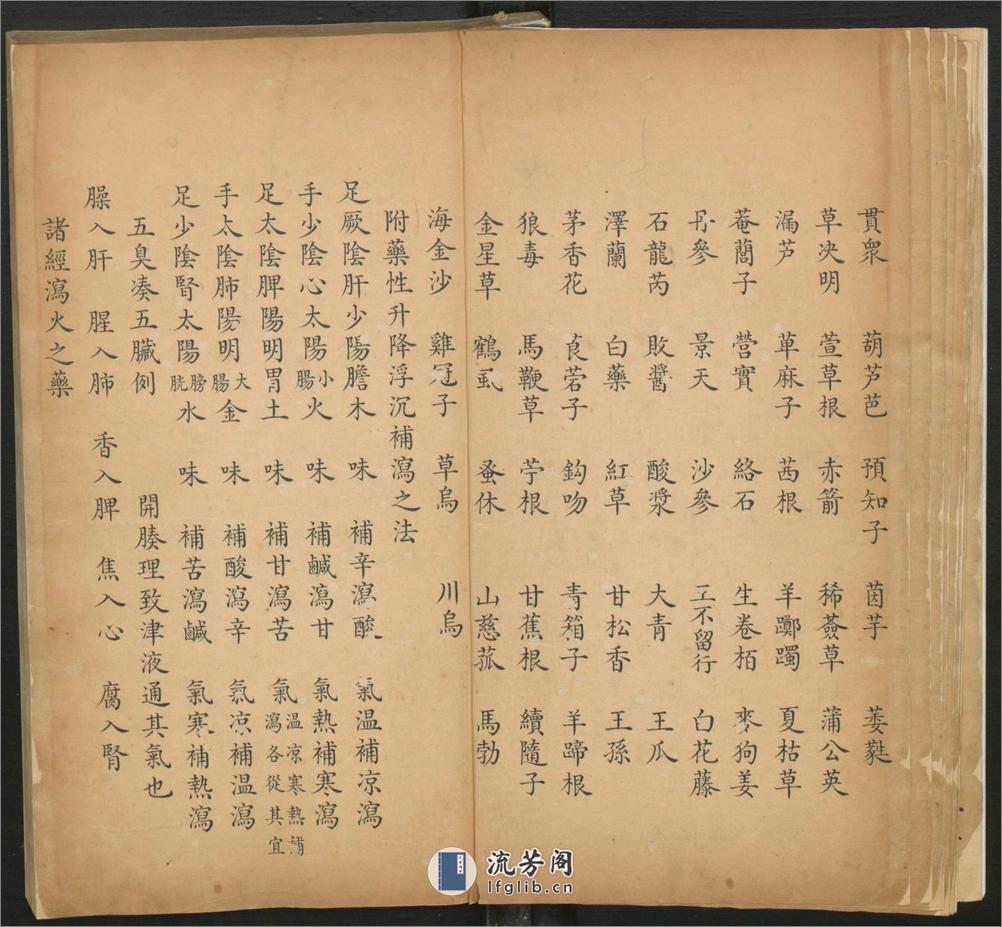 貫衆 葫芦芭 預知子 茵芋 萎蕤
草决明 萱草根 赤箭 稀薟草 蒲公英
漏芦 草麻子 茜根 羊躑躅 夏枯草
菴䕡子 營實 絡石 生卷栢 麥狗姜
丹參 景天 沙參 王不留行 白花藤
石龍芮 敗醬 酸漿 大青 王瓜
澤蘭 白藥 紅草 甘松香 王孫
茅香花 莨菪子 鈎吻 青箱子 羊蹄根
狼毒 馬鞭草 苧根 甘蕉根 續隨子
金星草 鶴虱 蚤休 山慈菰 馬勃
海金沙 雞冠子 草烏 川烏
附藥性升降浮沉補瀉之法
足厥陰肝少陽膽木 味 補辛瀉酸 氣溫補凉瀉
手少陰心太陽小腸火 味 補鹹瀉甘 氣熱補寒瀉
足太陰脾陽明胃土 味 補甘瀉苦 氣溫凉寒熱補瀉各從其宜
手太陰肺陽明大腸金 味 補酸瀉辛 氣凉補溫瀉
足少陰腎太陽膀胱水 味 補苦瀉鹹 氣寒補熱瀉
五臭凑五臟例 開腠理致津液通其氣也
臊入肝 腥入肺 香入脾 焦入心 腐入腎
諸經瀉火之藥
流芳阁
lfglib.cn